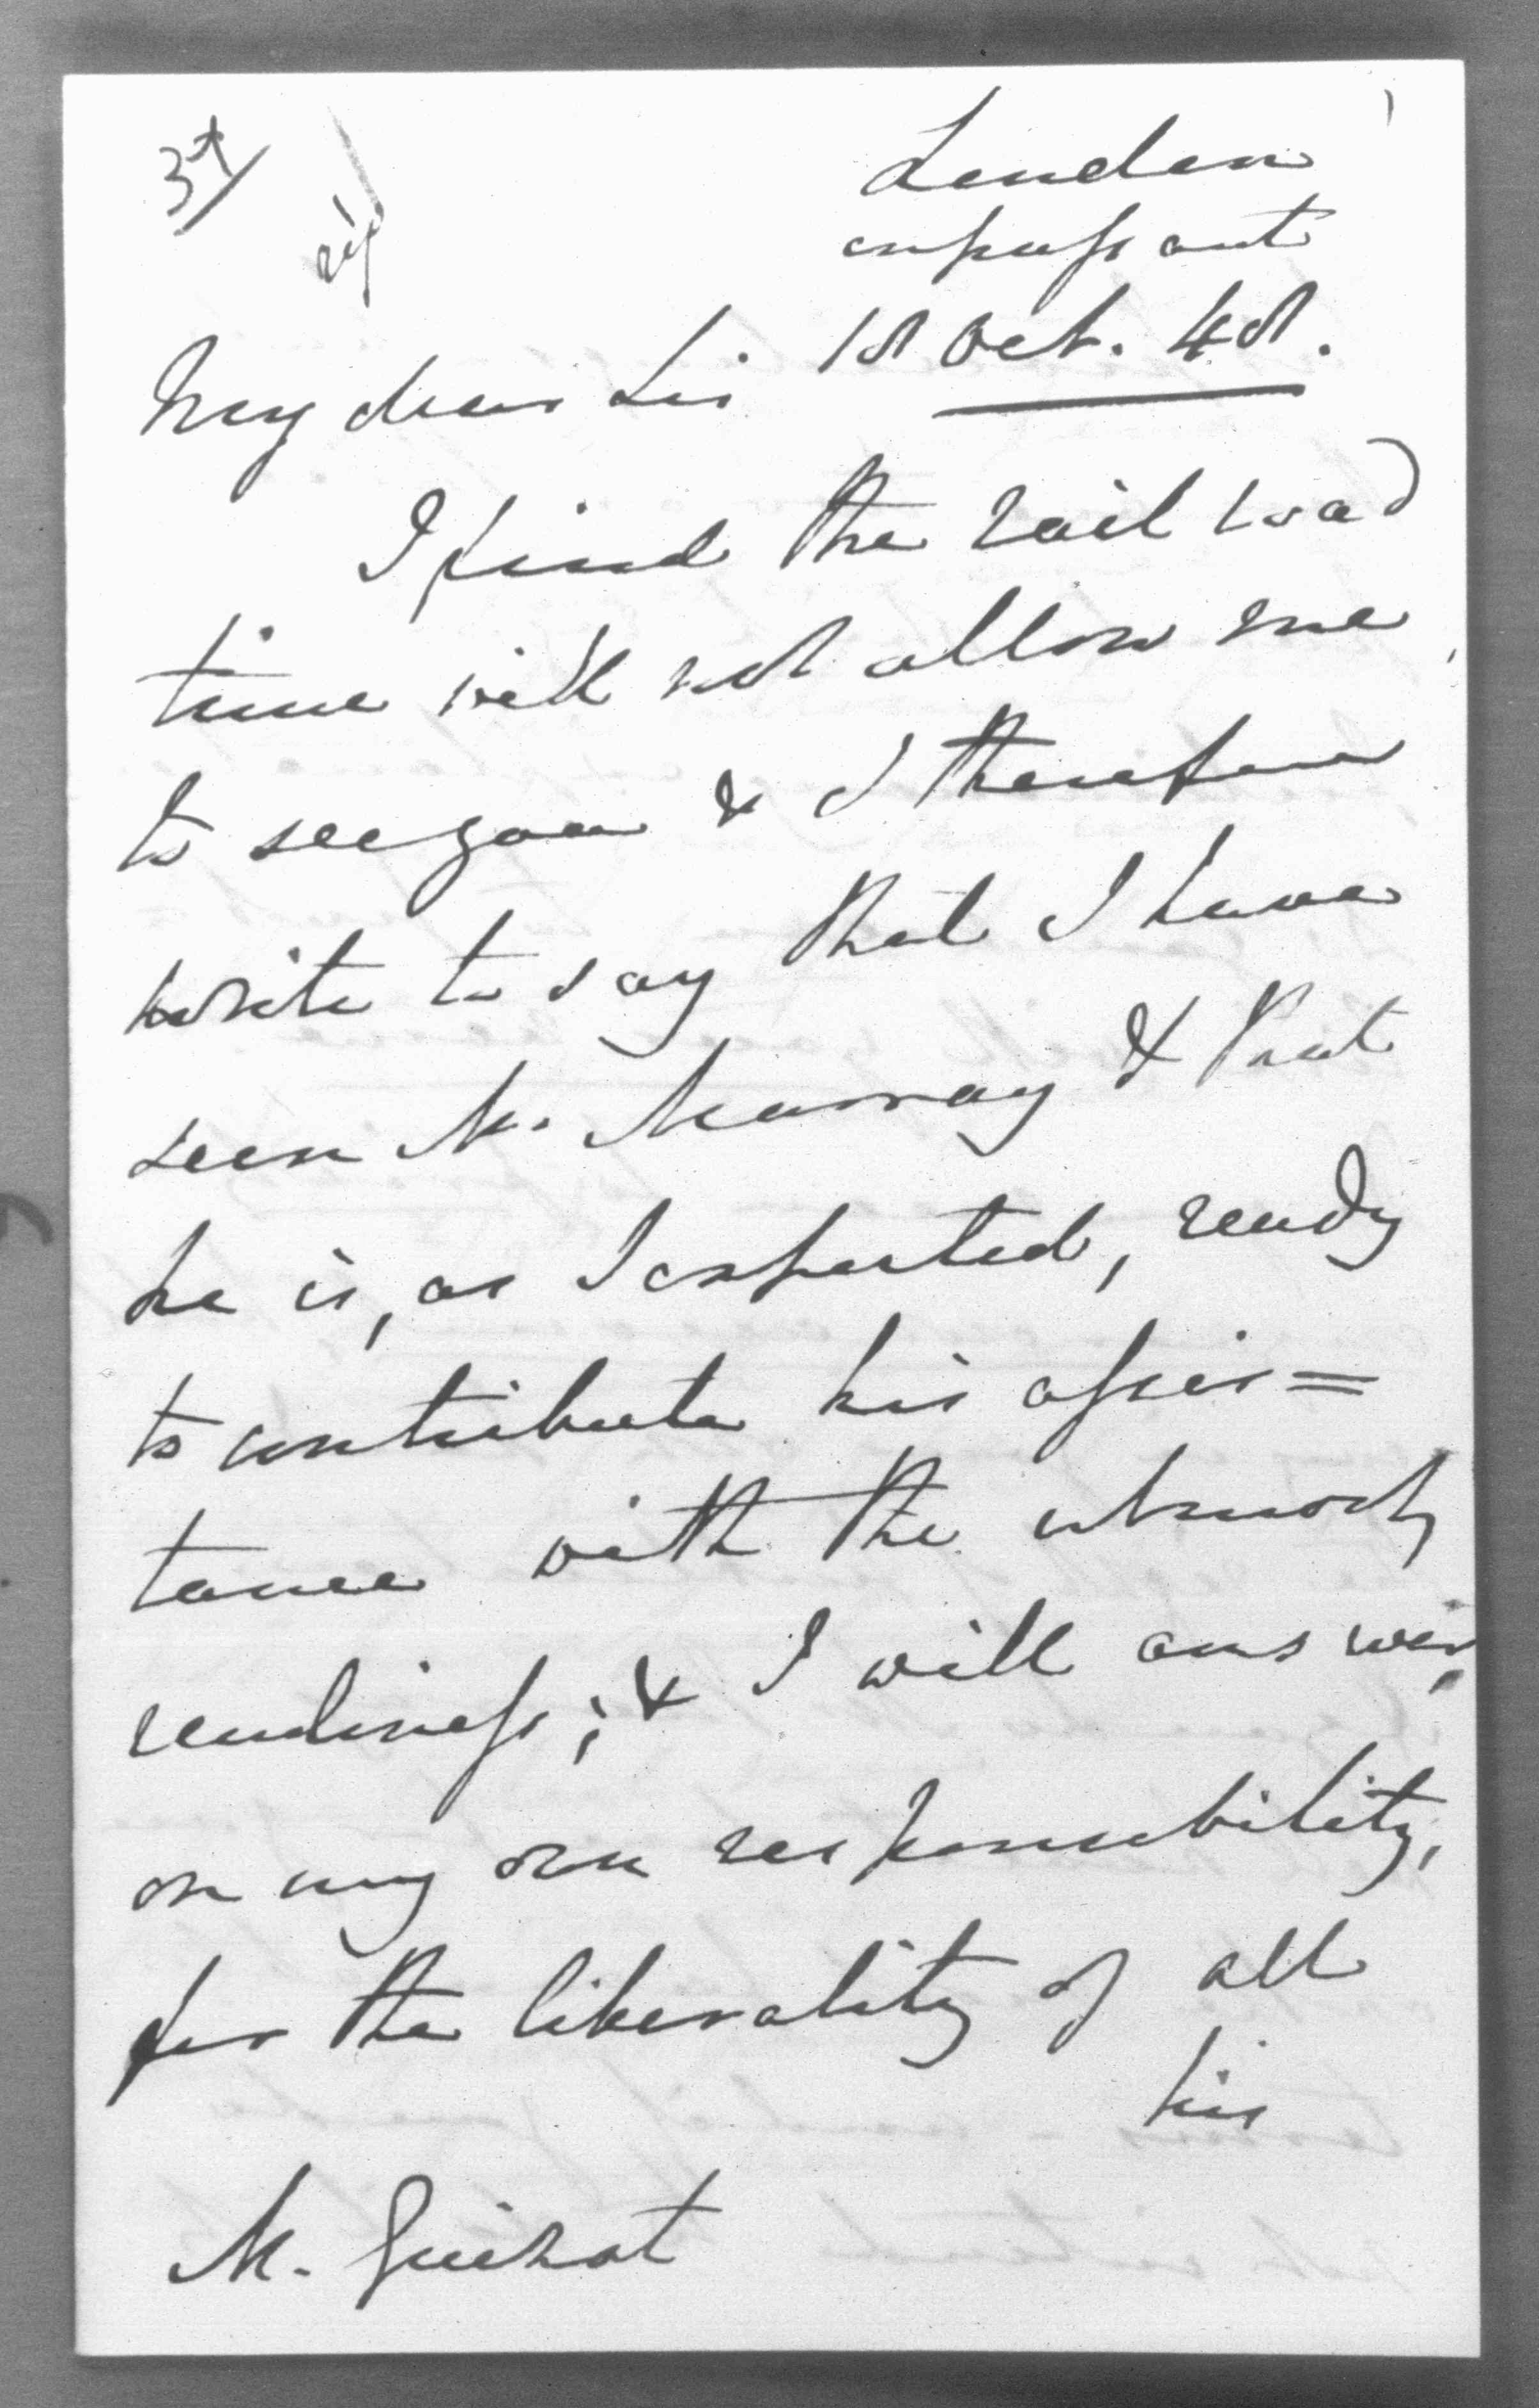 London
en passant
18 Oct. 48.
My dear Sir
I find the rail road
time will not allow me
to see you & I therefore
write to say that I have
seen Mr. Murray & that
he is, as I expected, ready
to contribute his assis=
tance with the utmost
readiness; & I will answer,
on my own responsibility,
for the liberality of all
his
M. Guizot